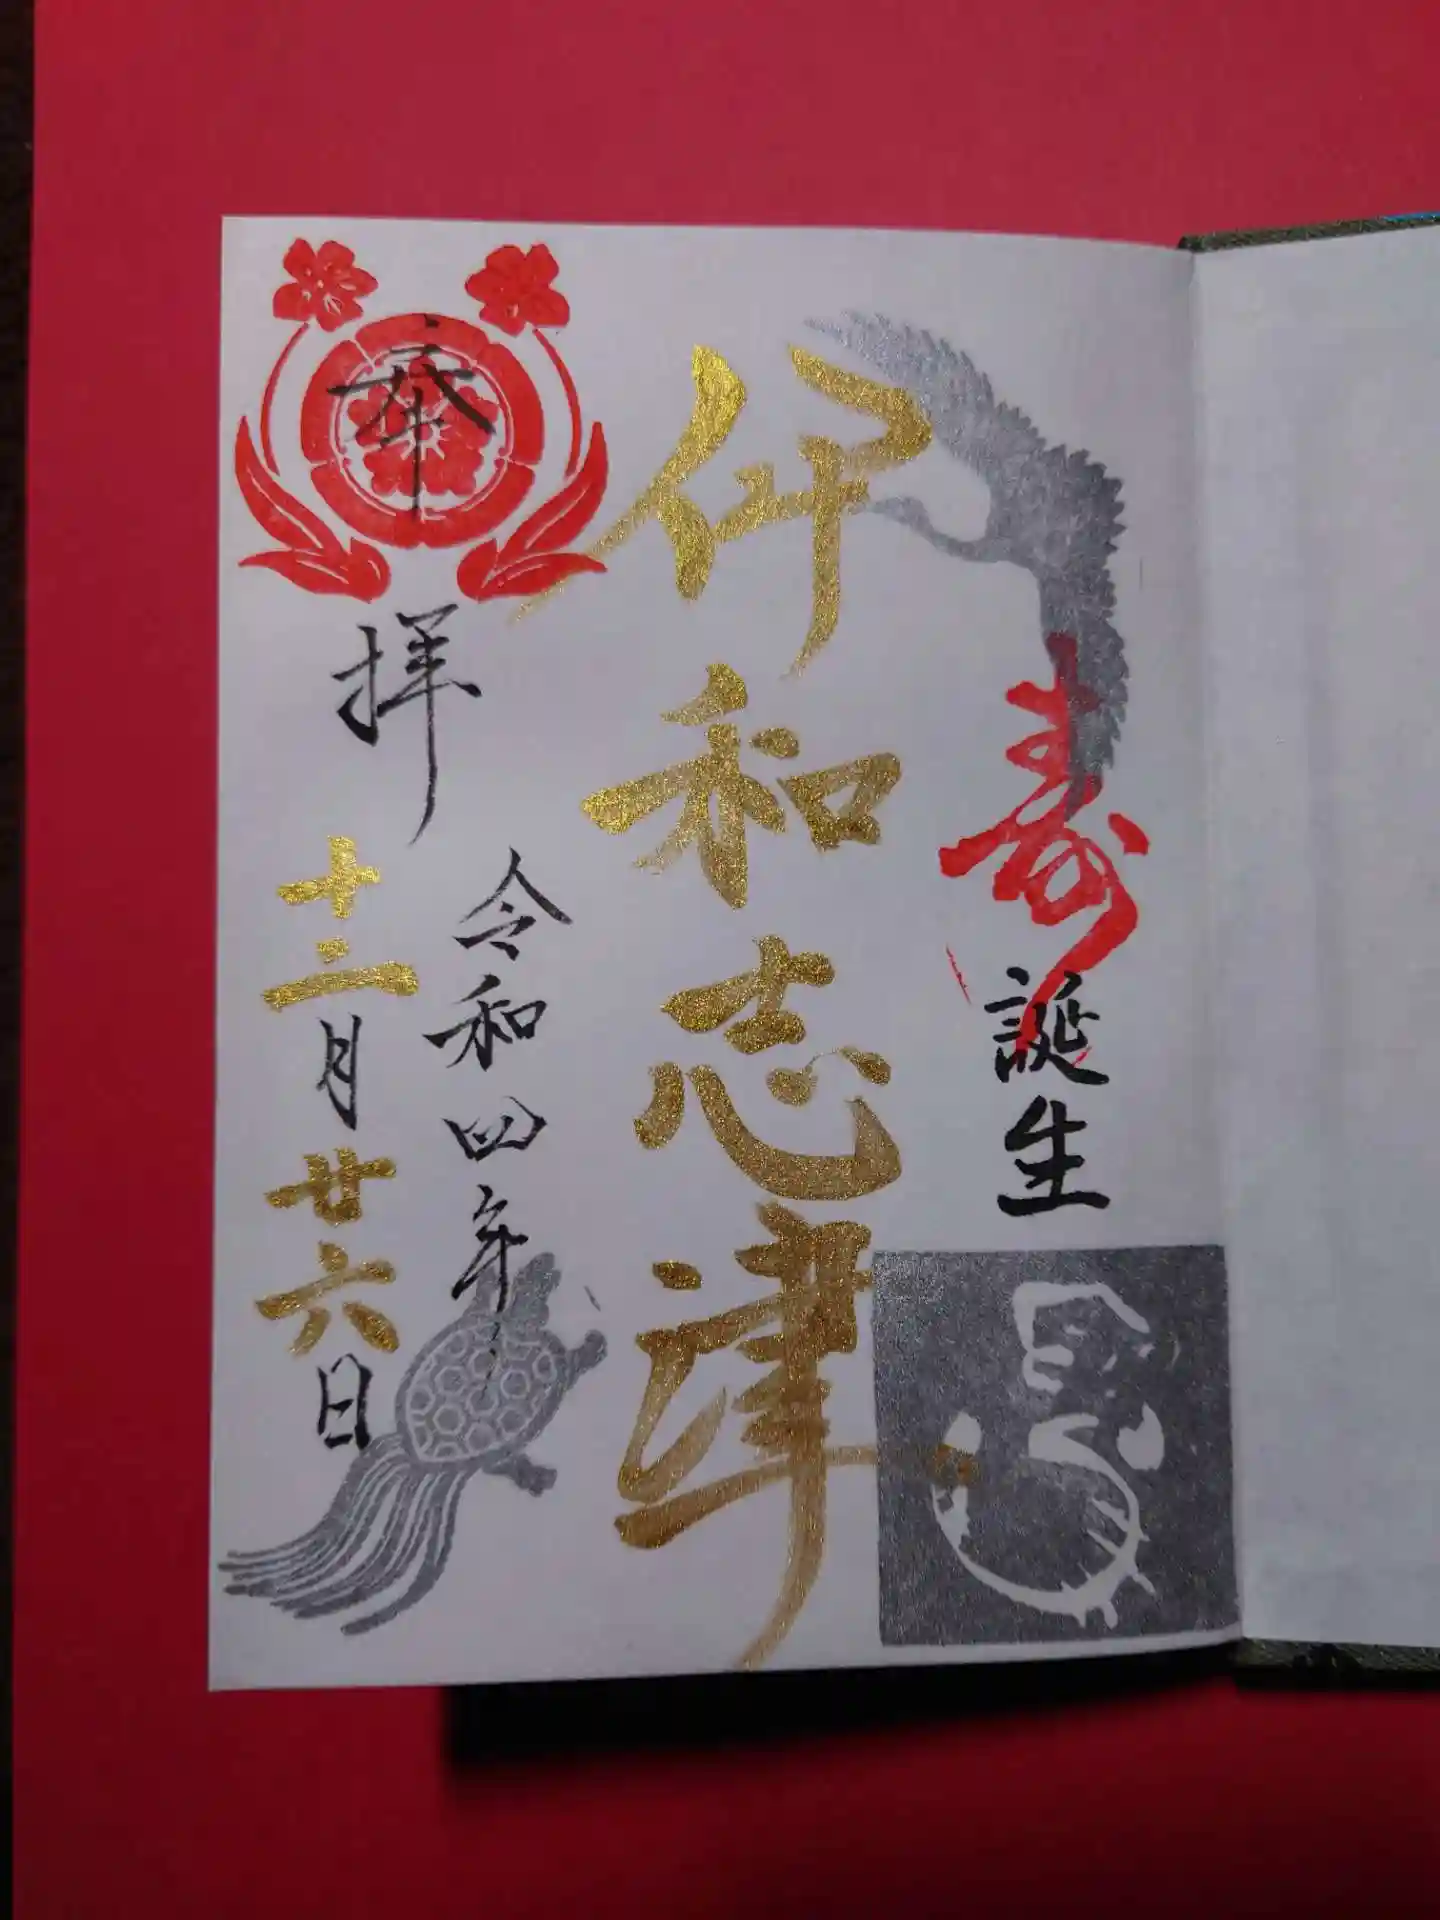 寿
誕生
伊和志津
奉
拝
令和四年
十二月廿六日